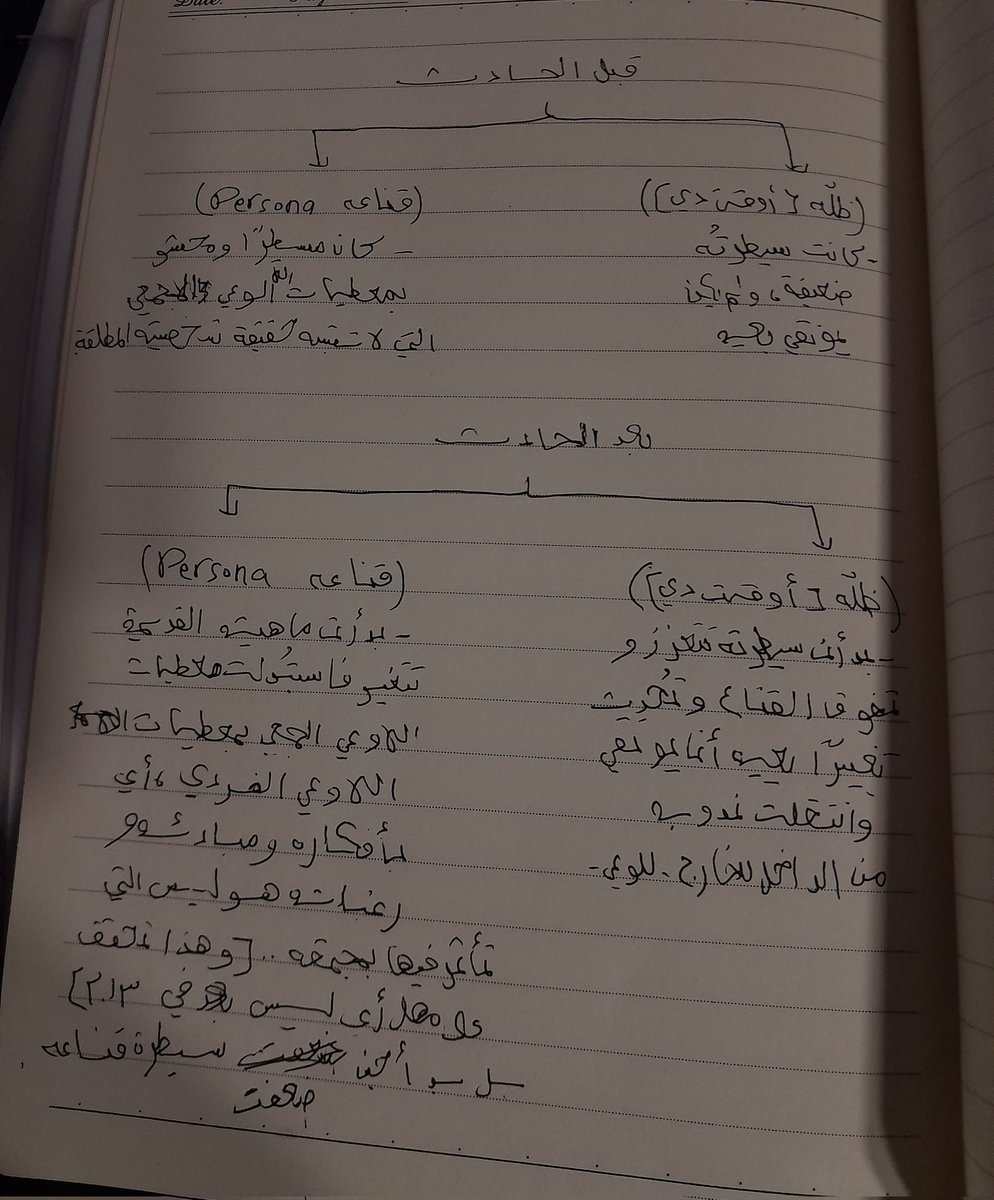 Date:
قبل الحادث
(ظلّه [أوقت دي])
- كانت سيطرتُه
ضعيفة، ولم يكن
يؤتقي بعيه
(قناعه Persona)
- كان مسيطرًا ومحشو
بمعطيات اللاوعي الجمعي
التي لا تشبه حقيقة شخصيته المطلقة
بعد الحادث
(ظلّه [أوقت دي])
- بدأت سيطرته تتعزز و
تفوق القناع وتُحدِث
تغييرًا بعيه أنا
وانتقلت
من الداخل للخارج - للوعي -
(قناعه Persona)
- بدأت ماهيته القديمة
تتغير فاستُبدلت معطيات
اللاوعي الجمعي بمعطيات
اللاوعي الفردي، أي
بأفكاره ومبادئه و
رغباته هو ليس التي
تأثر فيها بمجتمعه .. [وهذا تحقق
على مهل أي ليس في ٢،٣]
سيطرة قناعه
ضعفت